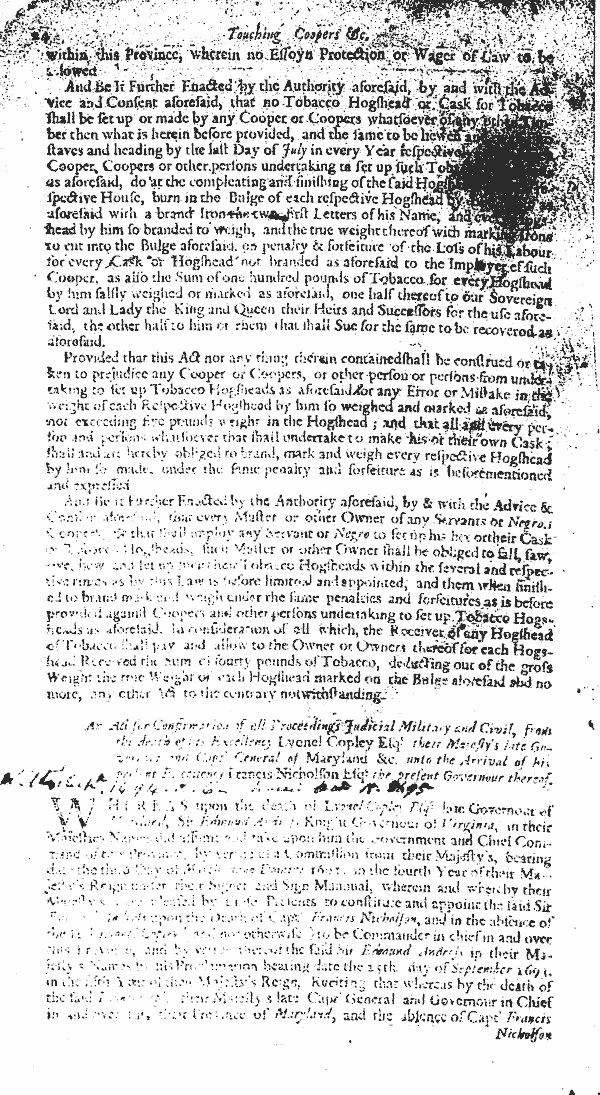 Touching Coopers &c.
within this Province, wherein no Essoyn Protection or Wager of Law to be
allowed
And Be It Further Enacted by the Authority aforesaid, by and with the Ad-
vice and Consent aforesaid, that no Tobacco Hogshead or Cask for Tobacco
shall be set up or made by any Cooper or Coopers whatsoever of any other Tim-
ber then what is herein before provided, and the same to be hewed
staves and heading by the last Day of July in every Year respectively
Cooper, Coopers or other persons undertaking to set up such Tob
as aforesaid, do at the compleating and finishing of the said Hogs
spective House, burn in the Bulge of each respective Hogshead by
aforesaid with a brand Iron the two first Letters of his Name, and every Hogs-
head by him so branded to weigh, and the true weight thereof with marking Irons
to cut into the Bulge aforesaid. on penalty & forfeiture of the Loss of his Labour
for every Cask or Hogshead not branded as aforesaid to the Imployer of such
Cooper, as also the Sum of one hundred pounds of Tobacco for every Hogshead
by him falsly weighed or marked as aforesaid, one half thereof to our Sovereign
Lord and Lady the King and Queen their Heirs and Successors for the use afore-
said, the other half to him or them that shall Sue for the same to be recovered as
aforesaid.
Provided that this Act nor any thing therein contained shall be construed or ta-
ken to prejudice any Cooper or Coopers, or other person or persons from under-
taking to set up Tobacco Hogsheads as aforesaid for any Error or Mistake in the
weight of each Respective Hogshead by him so weighed and marked as aforesaid,
not exceeding five pounds weight in the Hogshead ; and that all and every per-
son and persons whatsoever that shall undertake to make his or their own Cask ;
shall and are hereby obliged to brand, mark and weigh every respective Hogshead
by him so made, under the same penalty and forfeiture as is beforementioned
and expressed
And Be it Further Enacted by the Authority aforesaid, by & with the Advice &
Consent aforesaid, that every Master or other Owner of any Servants or Negroes
Coopers, or that shall imploy any Servant or Negro to set up his her or their Cask
or Tobacco Hogsheads, such Master or other Owner shall be obliged to fall, saw,
rive, hew and set up their Tobacco Hogsheads within the several and respec-
tive times as by this Law is before limited and appointed, and them when finish-
ed to brand mark and weigh under the same penalties and forfeitures as is before
provided against Coopers and other persons undertaking to set up Tobacco Hogs-
heads as aforesaid. In consideration of all which, the Receiver of any Hogshead
of Tobacco shall pay and allow to the Owner or Owners thereof for each Hogs-
head Received the Sum of fourty pounds of Tobacco, deducting out of the gross
Weight the true Weight of each Hogshead marked on the Bulge aforesaid and no
more, any other Act to the contrary notwithstanding.
An Act for Confirmation of all Proceedings Judicial Military and Civil, from
the death of his Excellency Lyonel Copley Esq; their Majesty's late Go-
vernour and Capt General of Maryland &c. unto the Arrival of his
present Excellency Francis Nicholson Esq; the present Governour thereof.
1695
WHEREAS upon the death of Lyonel Copley Esq; late Governour of
Maryland, Sir Edmund Andros Knight Governour of Virginia, in their
Majesties Names did assume and take upon him the Government and Chief Com-
mand of this Province, by vertue of a Commission from their Majesty's, bearing
date the third Day of in the fourth Year of their Ma-
jesty's Reign under their Signet and Sign Manual, wherein and whereby their
Majesty's were pleased by to constitute and appoint the said Sir
upon the Death of Capt Francis Nicholson, and in the absence of
the and not otherwise to be Commander in chief in and over
this Province, and by vertue thereof the said Sir Edmund Andros in their Ma-
jesty's Names by his Proclamation bearing date the 25th. day of September 1693.
in the fifth Year of their Majesty's Reign, Reciting that whereas by the death of
the said their Majesty's late Capt General and Governour in Chief
in and over this their Province of Maryland, and the absence of Capt Francis
Nicholson